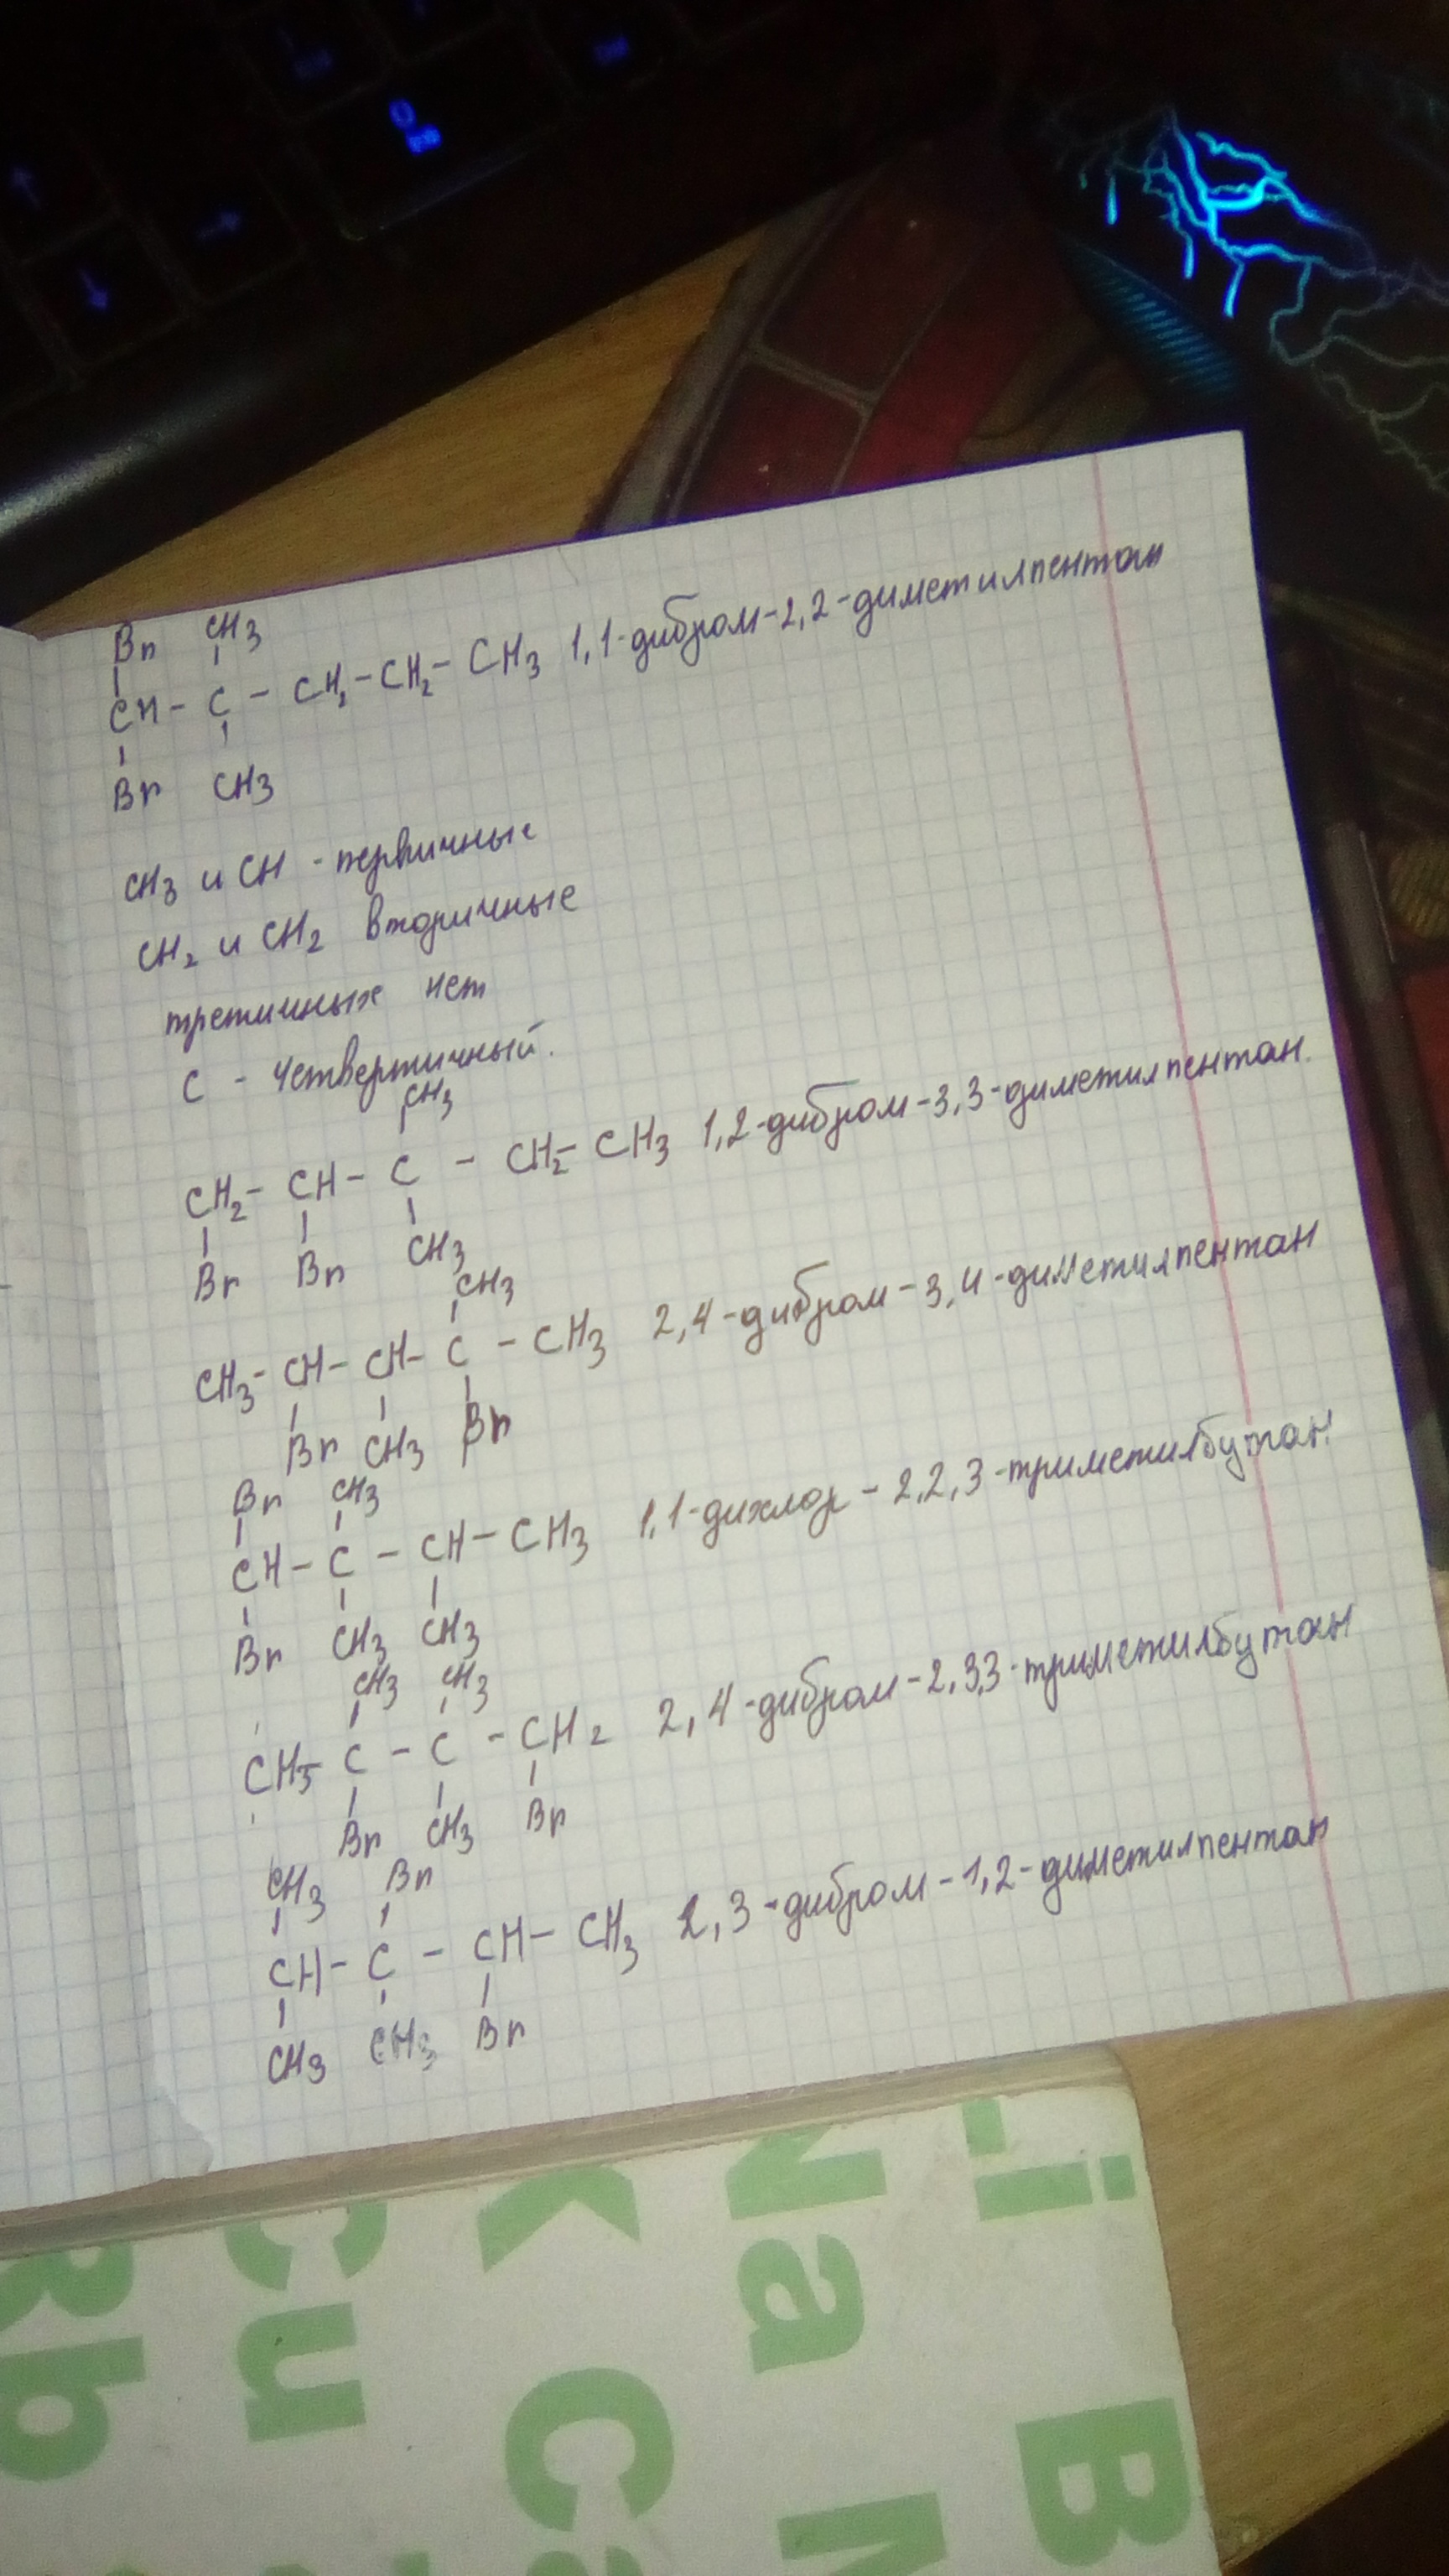 Br CH3
CH - C - CH2 - CH2 - CH3 1,1-дибром-2,2-диметилпентан
Br CH3
CH3 и CH - первичные
CH2 и CH2 вторичные
третичных нет
C - четвертичный.
CH3
CH2 - CH - C - CH2 - CH3 1,2-дибром-3,3-диметилпентан.
Br Br CH3
CH3
CH3 - CH - CH - C - CH3 2,4-дибром-3,4-диметилпентан
Br CH3 Br
Br CH3
CH - C - CH - CH3 1,1-дихлор-2,2,3-триметилбутан.
Br CH3 CH3
CH3 CH3
CH3 - C - C - CH2 2,4-дибром-2,3,3-триметилбутан
Br CH3 Br
CH3 Br
CH - C - CH - CH3 2,3-дибром-1,2-диметилпентан
CH3 CH3 Br
Li
Na
K
Cu
Rb
B
C